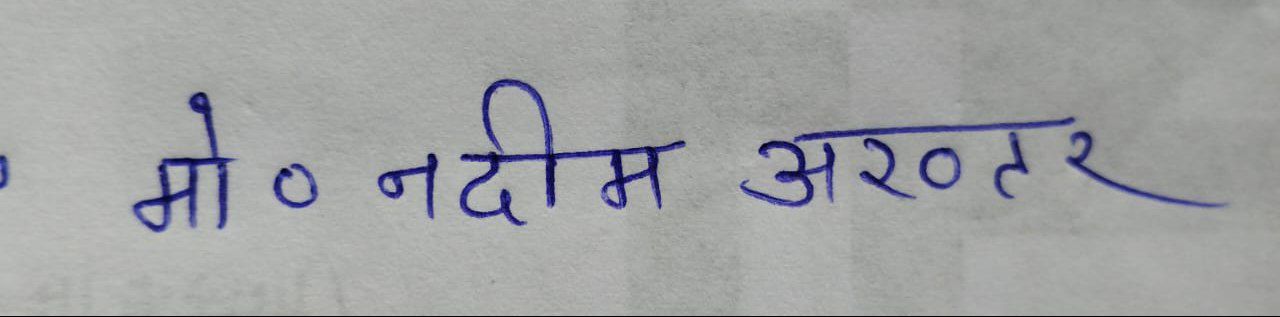 मो० नदीम अख्तर